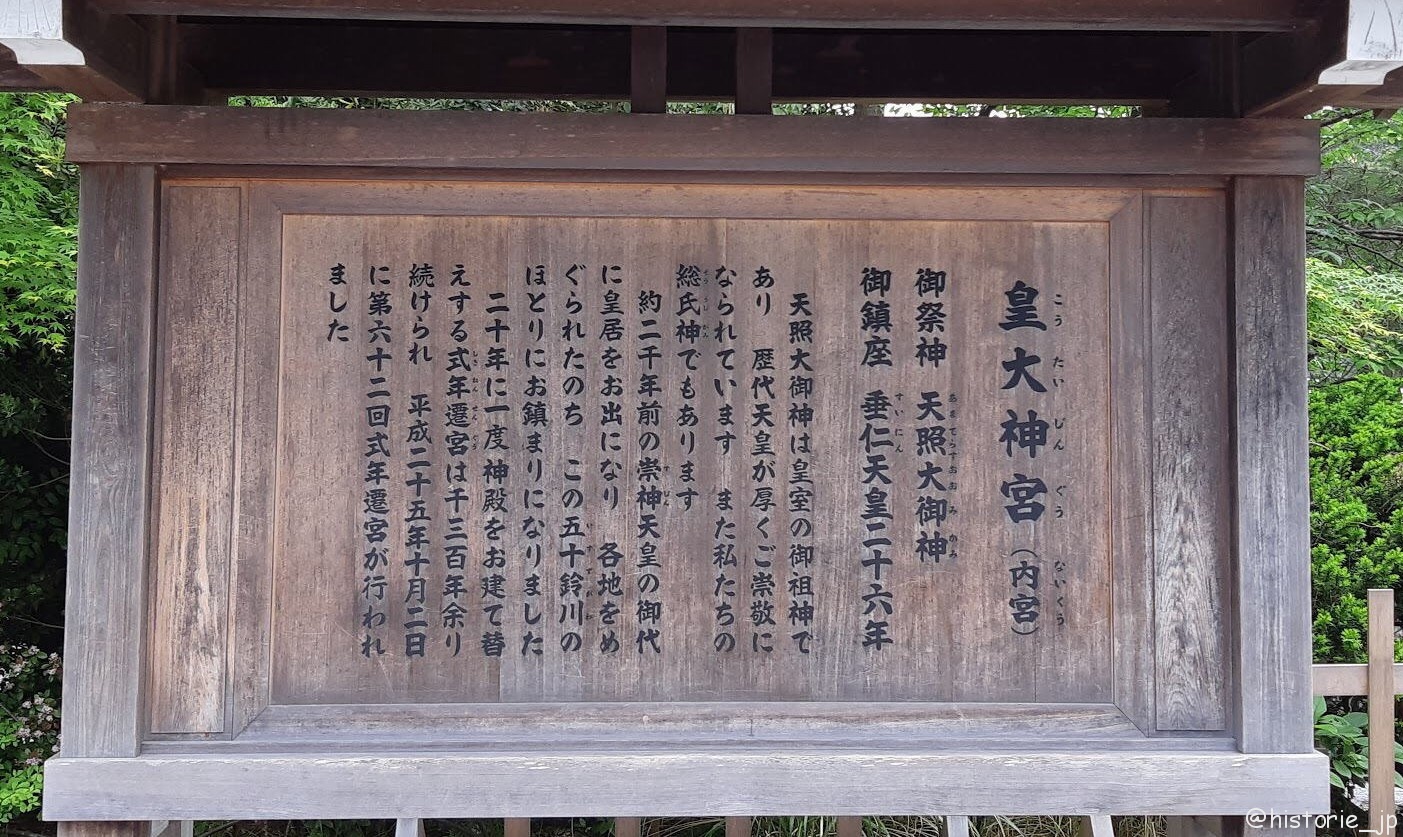 皇大神宮（内宮）
こうたいじんぐう ないくう
御祭神　天照大御神
あまてらすおおみかみ
御鎮座　垂仁天皇二十六年
すいにん
天照大御神は皇室の御祖神で
あり　歴代天皇が厚くご崇敬に
なられています　また私たちの
総氏神でもあります
そううじがみ
約二千年前の崇神天皇の御代
すじん
に皇居をお出になり　各地をめ
ぐられたのち　この五十鈴川の
いすずがわ
ほとりにお鎮まりになりました
二十年に一度神殿をお建て替
えする式年遷宮は千三百年余り
しきねんせんぐう
続けられ　平成二十五年十月二日
に第六十二回式年遷宮が行われ
ました
@historie_jp